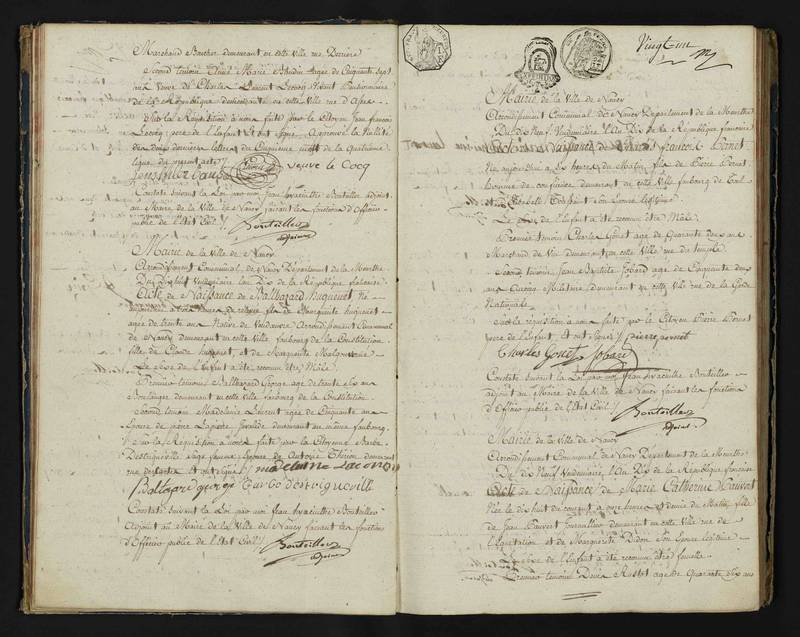 Marchand Boucher demeurant en cette ville rue Derriere
Second temoin Marie Baudin agee de Cinquante Sept
ans Veuve de Charles Laurent Lecocq vivant Pensionnaire
de la République demeurante en cette ville rue
Sur la Requisition à nous faite par le Citoyen Jean françois
Lecocq pere de l'enfant et ont signé. Approuvé la Nullité
des deux dernieres lettres du Cinquieme mot de la quatrieme
ligne du present acte
veuve le Cocq
Constaté suivant la Loi par moi Jean hyacinthe Boutailler adjoint
au Maire de la Ville de Nancy faisant les fonctions d'Officier
public de l'Etat Civil
Boutailler
adjoint
Mairie de la Ville de Nancy
Arrondissement Communal de Nancy Département de la Meurthe
Du Dixhuit Vendémiaire l'an Dix de la République française
Acte de Naissance de Balthazard huguenet Né
fils de Marguerite huguenet
agée de trente ans Native de Vandœuvre Arrondissement Communal
de Nancy demeurant en cette ville faubourg de la Constitution
fille de Claude huguenet, et de Marguerite
Le Sexe de l'Enfant a été reconnu être Mâle
Premier temoin Balthazard George age de trente six ans
Boulanger demeurant en cette ville faubourg de la Constitution.
Second temoin Madelaine Laurent agée de Cinquante ans
Epouse de pierre Lapointe demeurant au même faubourg.
Sur la Requisition à nous faite par la Citoyenne Barbe
Sage femme Epouse de Antoine Thirion demeurant
rue et ont signé
madeleine
Baltazard george Turbo d'ervigneville
Constaté suivant la Loi par moi Jean hyacinthe Boutailler
adjoint au Maire de la Ville de Nancy faisant les fonctions
d'Officier public de l'Etat Civil
Boutailler
adjoint
Vingt un
Mairie de la Ville de Nancy
Arrondissement Communal de Nancy Département de la Meurthe
Du Dix Neuf Vendémiaire l'An Dix de la République française
Acte de Naissance de françois Pernet
Né aujourdhui a six heures du Matin fils de Pierre Pernet
Homme de confiance demeurant en cette Ville faubourg de Toul
et d'Elisabeth son Epouse légitime
Le Sexe de l'Enfant a été reconnu être Mâle.
Premier temoin Charles Gouet age de Quarante deux ans
Marchand de Vin demeurant en cette ville rue du temple.
Second temoin Jean Baptiste Jobard age de Cinquante deux
ans Ancien Militaire demeurant en cette Ville rue de la Garde
Nationale.
Sur la réquisition à nous faite par le Citoyen Pierre Pernet
pere de l'Enfant et ont signé pierre pernet
Charles Gouet Jobard
Constaté suivant la Loi par moi Jean hyacinthe Boutailler
adjoint au Maire de la Ville de Nancy faisant les fonctions
d'Officier public de l'Etat Civil
Boutailler
adjoint
Mairie de la Ville de Nancy
Arrondissement Communal de Nancy Département de la Meurthe
Du dix Neuf Vendémiaire l'An Dix de la République française
Acte de Naissance de Marie Catherine Pauvert
Née le dix huit du courant a onze heures et demie du Matin, fille
de Jean Pauvert Journallier demeurant en cette Ville rue de
l'Equitation et de Marguerite Didon son Epouse légitime
Le Sexe de l'Enfant a été reconnu être femelle.
Premier temoin Denis age de Quarante six ans